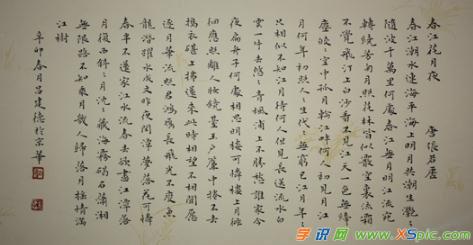 春江花月夜 唐 張若虛
春江潮水連海平海上明月共潮生灧〻
隨波千萬里何處春江無月明江流宛
轉繞芳甸月照花林皆似霰空裏流霜
不覺飛汀上白沙看不見江天一色無纖
塵皎〻空中孤月輪江畔何人初見月江
月何年初照人人生代〻無窮已江月年〻
只相似不知江月待何人但見長江送流水白
雲一片去悠〻青楓浦上不勝愁誰家今
夜扁舟子何處相思明月樓可憐樓上月徘
徊應照離人妝鏡臺玉戶簾中捲不去
擣衣砧上拂還來此時相望不相聞願
逐月華流照君鴻雁長飛光不度魚
龍潛躍水成文昨夜閒潭夢落花可憐
春半不還家江水流春去欲盡江潭落
月復西斜〻月沈〻藏海霧碣石瀟湘
無限路不知乘月幾人歸落月搖情滿
江樹
辛卯春月呂建德於京華
学识网
www.XSpic.com